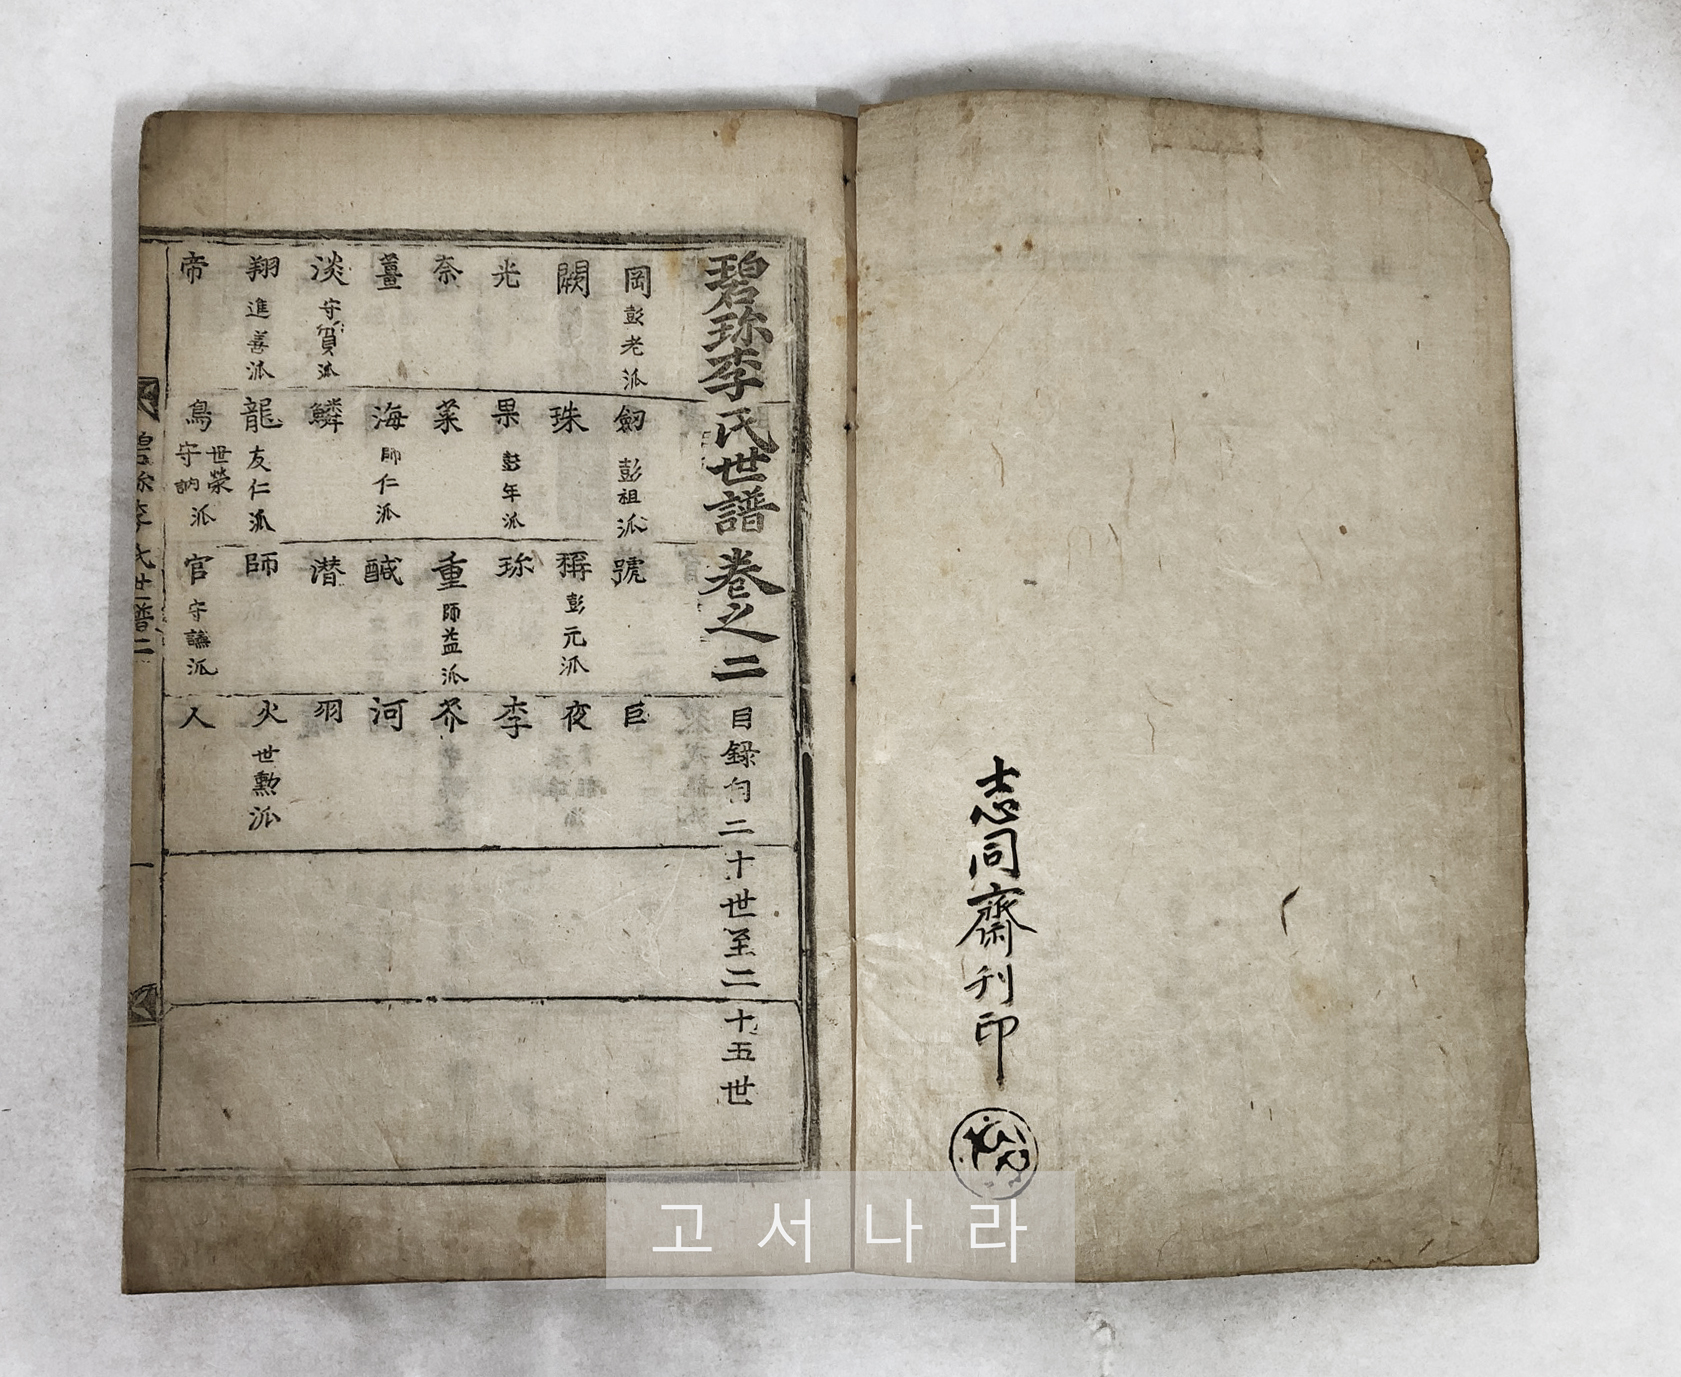 志同齋刋印
碧珎李氏世譜卷之二 目録自二十世至二十五世
岡 彭老派 劒 彭祖派 號 巨
闕 珠 稱 彭元派 夜
光 果 彭年派 珎 李
奈 菜 重 師益派 芥
薑 海 師仁派 醎 河
淡 守質派 鱗 潜 羽
翔 進善派 龍 友仁派 師 火 世勲派
帝 鳥 世榮 守訥 派 官 守謙派 人
碧珎李氏世譜二 一
고서나라